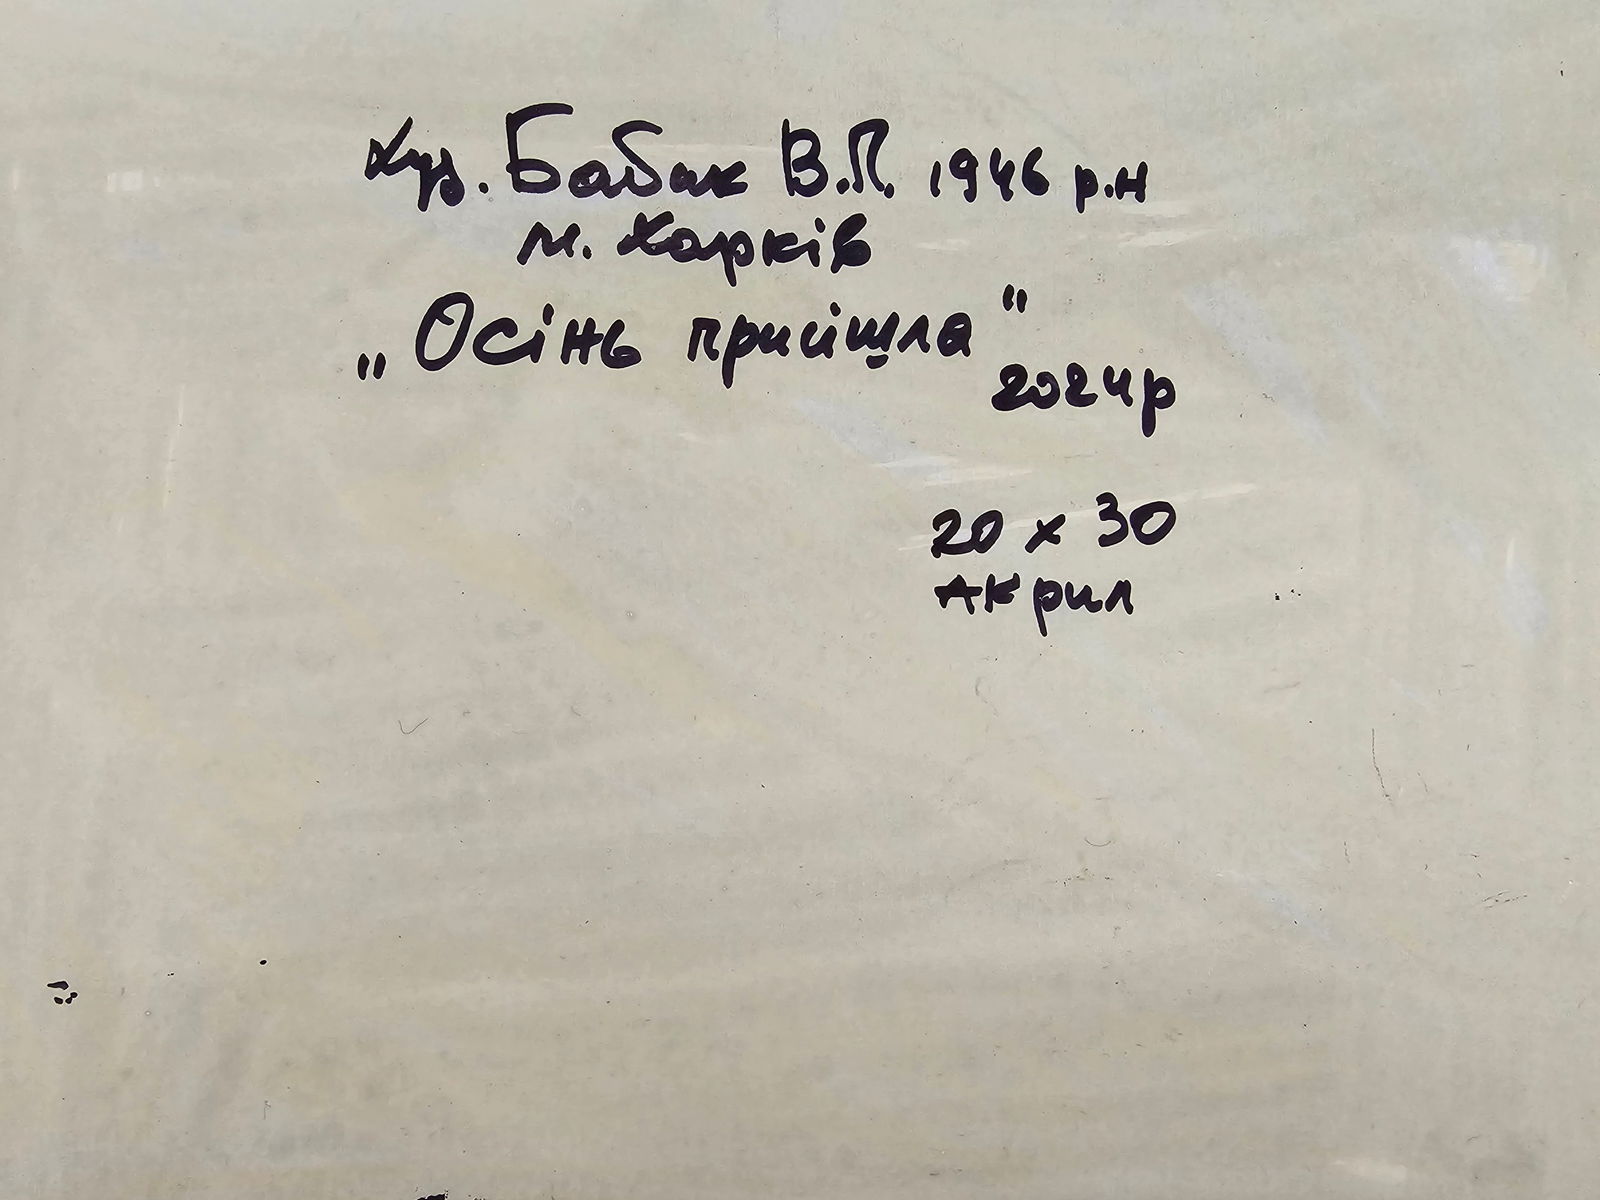 Худ. Бабак В.П. 1946 р.н
м. Харків
„Осінь прийшла"
2024р
20 х 30
Акрил